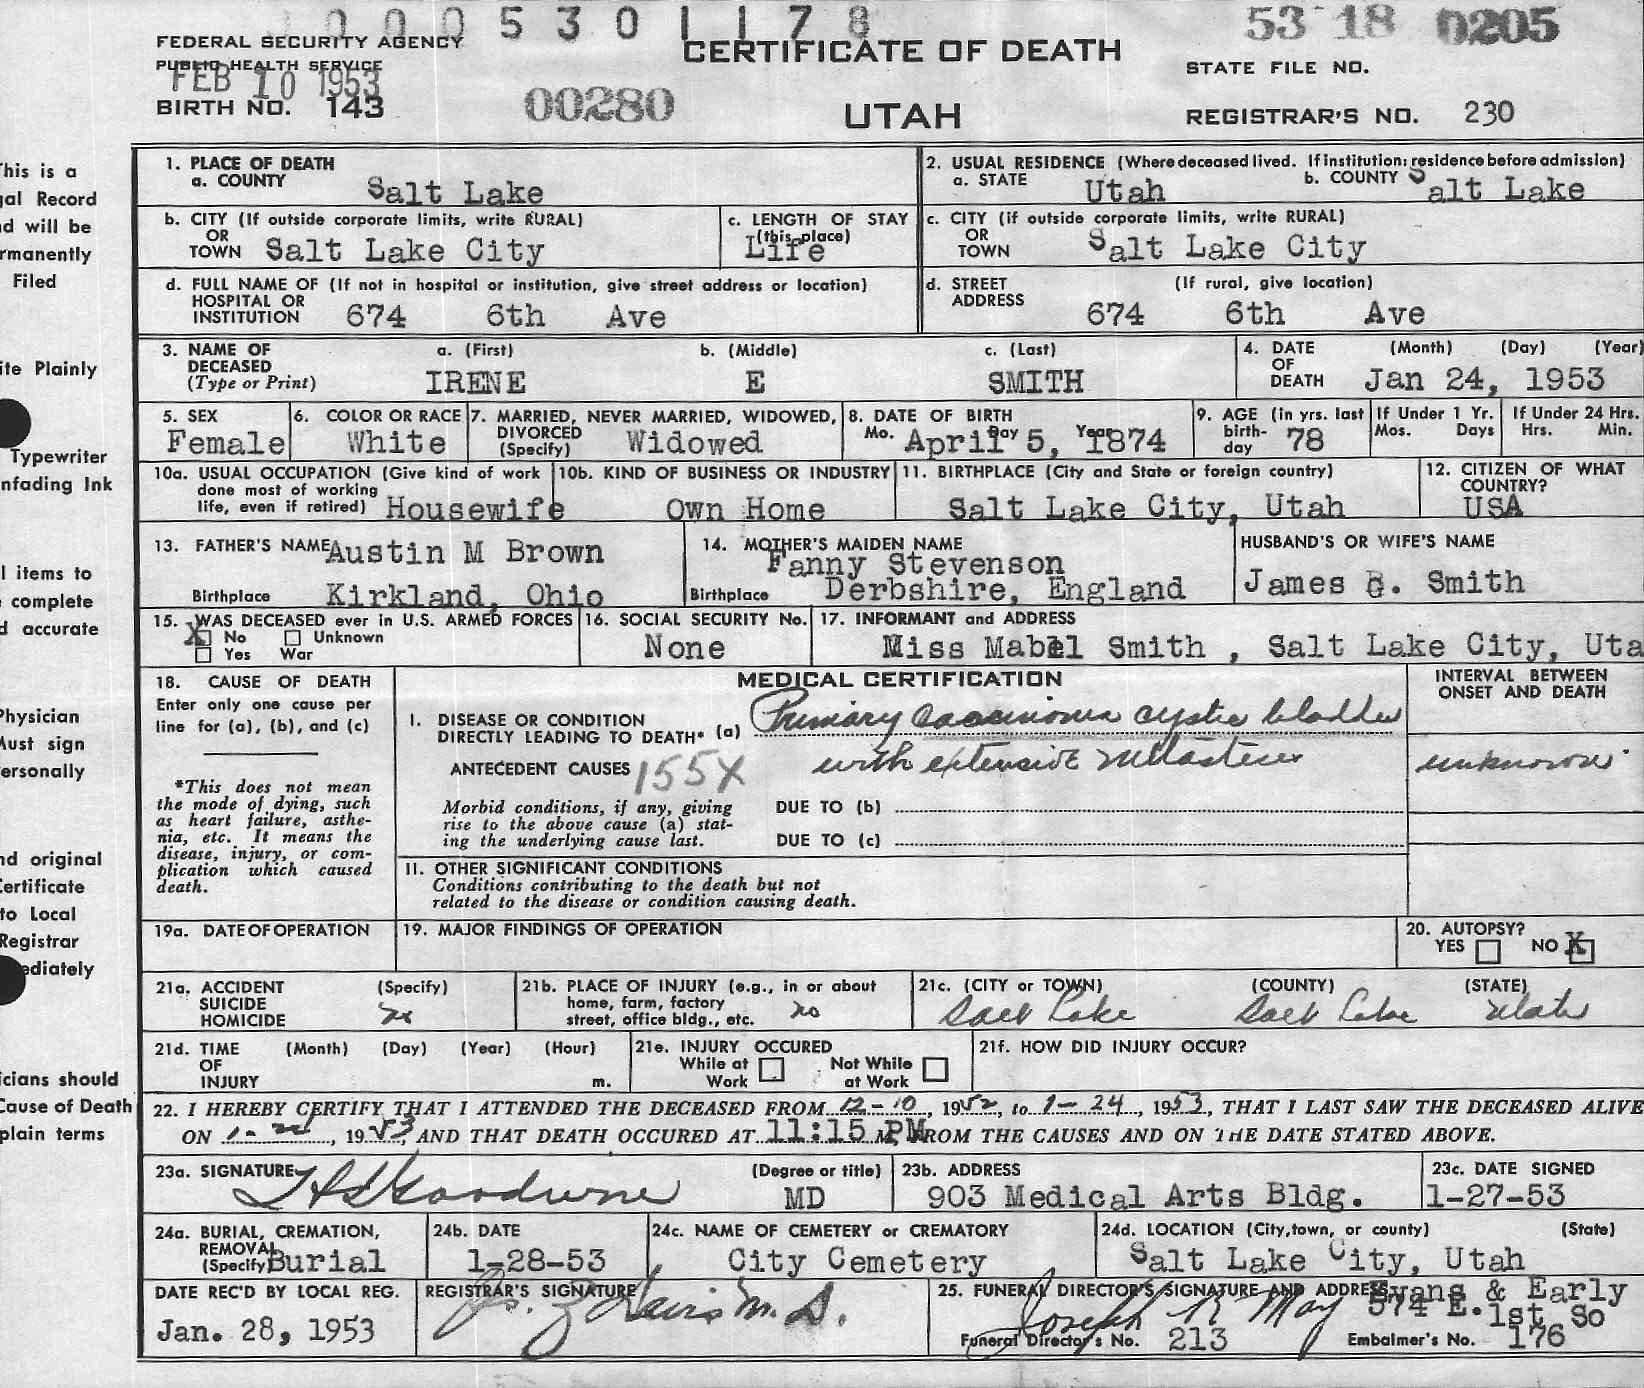 1 0 0 0 5 3 0 1 1 7 8
53 18 0205
FEDERAL SECURITY AGENCY
PUBLIC HEALTH SERVICE
FEB 10 1953
BIRTH NO. 143
00280
CERTIFICATE OF DEATH
UTAH
STATE FILE NO.
REGISTRAR'S NO. 230
This is a
gal Record
nd will be
rmanently
Filed
ite Plainly
Typewriter
nfading Ink
l items to
complete
d accurate
Physician
Must sign
ersonally
nd original
Certificate
to Local
Registrar
ediately
icians should
Cause of Death
plain terms
1. PLACE OF DEATH
a. COUNTY Salt Lake
2. USUAL RESIDENCE (Where deceased lived. If institution: residence before admission)
a. STATE Utah b. COUNTY Salt Lake
b. CITY (If outside corporate limits, write RURAL)
OR
TOWN Salt Lake City
c. LENGTH OF STAY
(this place)
Life
c. CITY (if outside corporate limits, write RURAL)
OR
TOWN Salt Lake City
d. FULL NAME OF (If not in hospital or institution, give street address or location)
HOSPITAL OR
INSTITUTION 674 6th Ave
d. STREET (If rural, give location)
ADDRESS 674 6th Ave
3. NAME OF a. (First) b. (Middle) c. (Last)
DECEASED
(Type or Print) IRENE E SMITH
4. DATE (Month) (Day) (Year)
OF
DEATH Jan 24, 1953
5. SEX
Female
6. COLOR OR RACE
White
7. MARRIED, NEVER MARRIED, WIDOWED,
DIVORCED
(Specify) Widowed
8. DATE OF BIRTH
Mo. Day Year
April 5, 1874
9. AGE (in yrs. last
birth-
day 78
If Under 1 Yr.
Mos. Days
If Under 24 Hrs.
Hrs. Min.
10a. USUAL OCCUPATION (Give kind of work
done most of working
life, even if retired) Housewife
10b. KIND OF BUSINESS OR INDUSTRY
Own Home
11. BIRTHPLACE (City and State or foreign country)
Salt Lake City, Utah
12. CITIZEN OF WHAT
COUNTRY?
USA
13. FATHER'S NAME Austin M Brown
Birthplace Kirkland, Ohio
14. MOTHER'S MAIDEN NAME
Fanny Stevenson
Birthplace Derbshire, England
HUSBAND'S OR WIFE'S NAME
James G. Smith
15. WAS DECEASED ever in U.S. ARMED FORCES
X No Unknown
Yes War
16. SOCIAL SECURITY No.
None
17. INFORMANT and ADDRESS
Miss Mabel Smith , Salt Lake City, Uta
18. CAUSE OF DEATH
Enter only one cause per
line for (a), (b), and (c)
*This does not mean
the mode of dying, such
as heart failure, asthe-
nia, etc. It means the
disease, injury, or com-
plication which caused
death.
MEDICAL CERTIFICATION
I. DISEASE OR CONDITION
DIRECTLY LEADING TO DEATH* (a) Primary carcinoma cystic bladder
ANTECEDENT CAUSES 155X with extensive metastases
Morbid conditions, if any, giving
rise to the above cause (a) stat-
ing the underlying cause last.
DUE TO (b)
DUE TO (c)
INTERVAL BETWEEN
ONSET AND DEATH
unknown
II. OTHER SIGNIFICANT CONDITIONS
Conditions contributing to the death but not
related to the disease or condition causing death.
19a. DATE OF OPERATION
19. MAJOR FINDINGS OF OPERATION
20. AUTOPSY?
YES NO X
21a. ACCIDENT (Specify)
SUICIDE
HOMICIDE no
21b. PLACE OF INJURY (e.g., in or about
home, farm, factory
street, office bldg., etc. no
21c. (CITY or TOWN) (COUNTY) (STATE)
Salt Lake Salt Lake Utah
21d. TIME (Month) (Day) (Year) (Hour)
OF
INJURY m.
21e. INJURY OCCURED
While at Not While
Work at Work
21f. HOW DID INJURY OCCUR?
22. I HEREBY CERTIFY THAT I ATTENDED THE DECEASED FROM 12-10, 1952, to 1-24, 1953, THAT I LAST SAW THE DECEASED ALIVE
ON 1-24, 1953, AND THAT DEATH OCCURED AT 11:15 PM FROM THE CAUSES AND ON THE DATE STATED ABOVE.
23a. SIGNATURE (Degree or title)
MD
23b. ADDRESS
903 Medical Arts Bldg.
23c. DATE SIGNED
1-27-53
24a. BURIAL, CREMATION,
REMOVAL
(Specify) Burial
24b. DATE
1-28-53
24c. NAME OF CEMETERY or CREMATORY
City Cemetery
24d. LOCATION (City, town, or county) (State)
Salt Lake City, Utah
DATE REC'D BY LOCAL REG.
Jan. 28, 1953
REGISTRAR'S SIGNATURE
M.D.
25. FUNERAL DIRECTOR'S SIGNATURE AND ADDRESS Evans & Early
Joseph R May 574 E. 1st So
Funeral Director's No. 213
Embalmer's No. 176